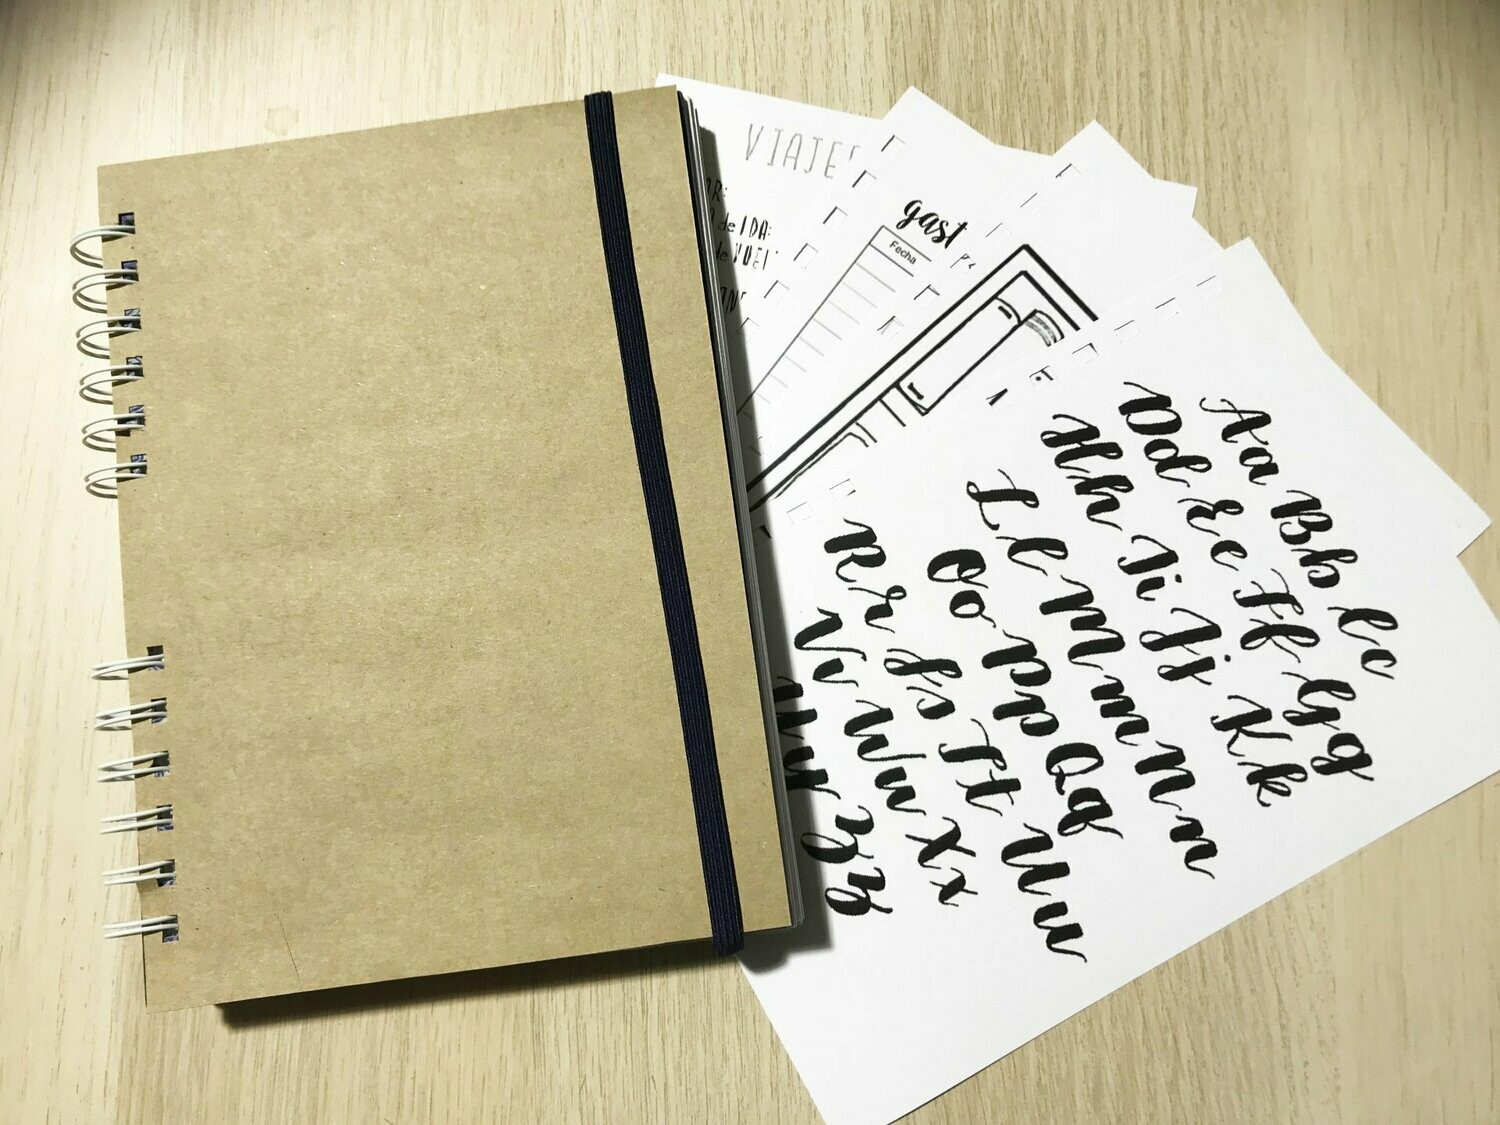 VIAJES
de IDA:
de VUEL
gast
Fecha
Aa Bb Cc
Dd Ee Ff Gg
Hh Ii Jj Kk
Ll Mm Nn
Oo Pp Qq
Rr Ss Tt Uu
Vv Ww Xx
Yy Zz